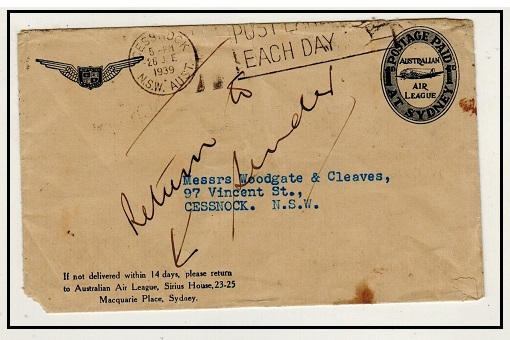 CESSNOCK
5 - PM
26 JE
1939
N.S.W. AUST.
POST EARLY
EACH DAY
POSTAGE PAID
1D
AUSTRALIAN
AIR
LEAGUE
AT SYDNEY
Return to Sender
Messrs Woodgate & Cleaves,
97 Vincent St.,
CESSNOCK. N.S.W.
If not delivered within 14 days, please return
to Australian Air League, Sirius House, 23-25
Macquarie Place, Sydney.